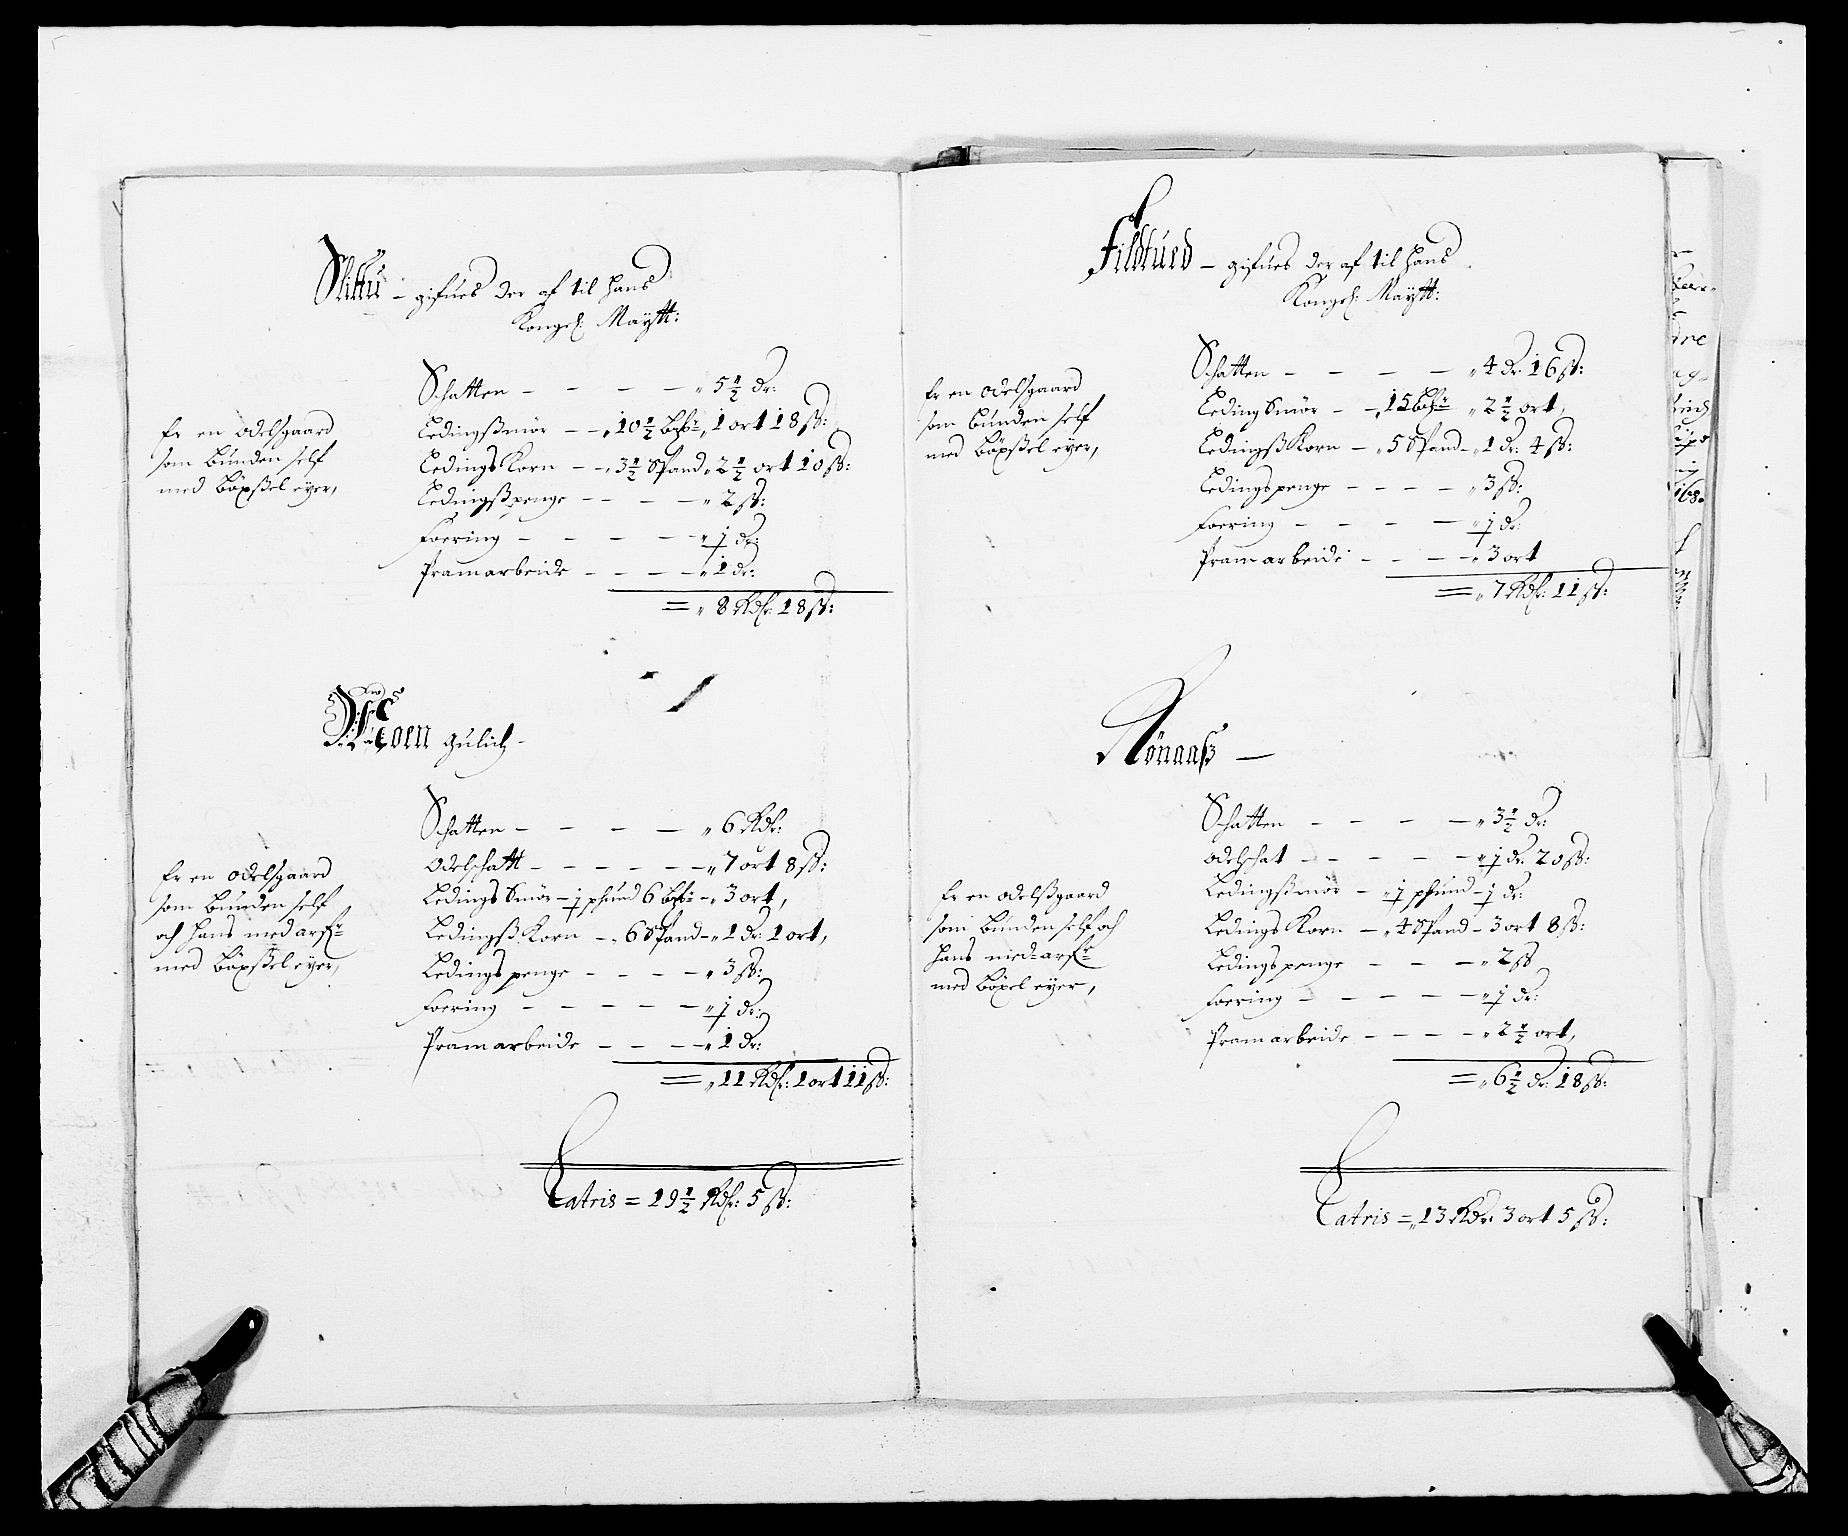 Slittu – gifues der af til hans
Kongel: Maÿtt:
Er en odelsgaard
som bunden self
med böxßel eyer,
Schatten – – – – „ 5½ dr:
Ledingsßmör – – „10½ bßß: „1 ort 18 ß:
Ledings Korn – – „3½ Spand „2½ ort 10 ß:
Ledingßpenge – – – – „ 2 ß:
Foering – – – – – „ j dr:
Pramarbeide – – – – „ 1 dr:
= „ 8 Rdl: 18 ß:
Moen gulich –
Er en odelsgaard
som bunden self
och hans med arf:
med böxßel eyer,
Schatten – – – – „ 6 Rdr:
Odelschatt – – – – – „ 7 ort 8 ß:
Ledings Smör – j phund 6 – „ 3 ort,
Ledingß Korn – „ 6 Spand – „ 1 dr: 1 ort,
Ledings penge – – – – „ 3 ß:
Foering – – – – – „ j dr:
Pramarbeide – – – – „ 1 dr:
= „ 11 Rdl: 1 ort 11 ß:
Latris = 19½ Rdl: 5 ß:
Fildtued – gifues der af til hans
Kongel: Maÿtt:
Er en odelsgaard
som bunden self
med böxßel eyer,
Schatten – – – – „ 4 dr 16 ß:
Leding Smör – – „ 15 „ 2½ ort,
Ledingß Korn – „ 5 Spand – „ 1 dr: 4 ß:
Ledings penge – – – – „ 3 ß:
Foering – – – – „ j dr:
Pramarbeide – – – – „ 3 ort
= „ 7 Rdl: 11 ß:
Rönaaß –
Er en odelßgaard
som bunden self och
hans med arf:
med böxel eyer,
Schatten – – – – „ 3½ dr:
Odelschat – – – – – „ j dr. 20 ß:
Ledingßmör – „ j phund – j dr:
Ledings Korn – „ 4 Spand – 3 ort 8 ß:
Ledings penge – – – „ 2 ß
Foering – – – – – „ j dr:
Pramarbeide – – – – „ 2½ ort,
= „ 6½ dr: 18 ß:
Latris = „ 13 Rdr 3 ort 5 ß: